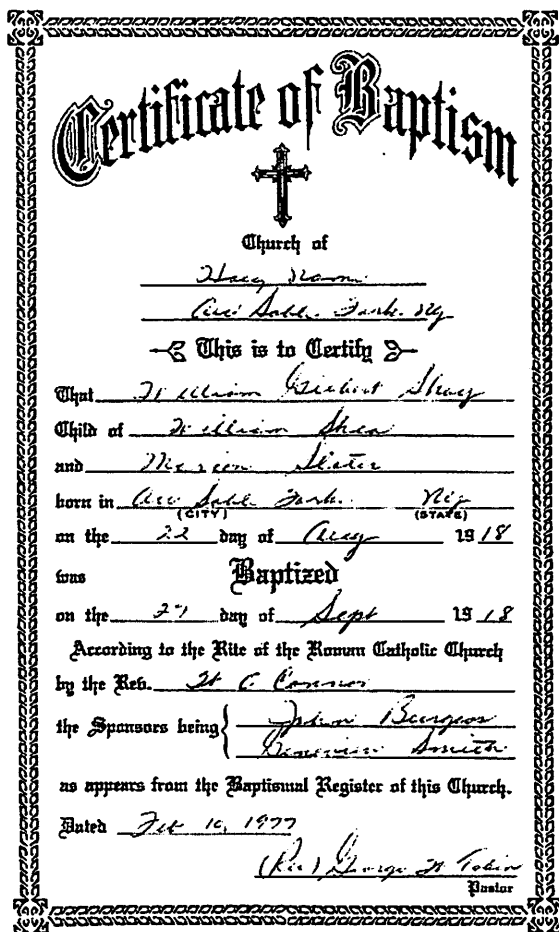 Certificate of Baptism
Church of
Holy Name
Au Sable Fork. Ny
This is to Certify
That William Gilbert Shay
Child of William Shea
and Slater
born in Au Sable Fork. Ny
(CITY) (STATE)
on the 22 day of Aug 1918
was Baptized
on the day of Sept 1918
According to the Rite of the Roman Catholic Church
by the Rev. Connor
the Sponsors being John Burgeos
Genevieve Smith
as appears from the Baptismal Register of this Church.
Dated Feb 10, 1977
(Rev) George Tobin
Pastor